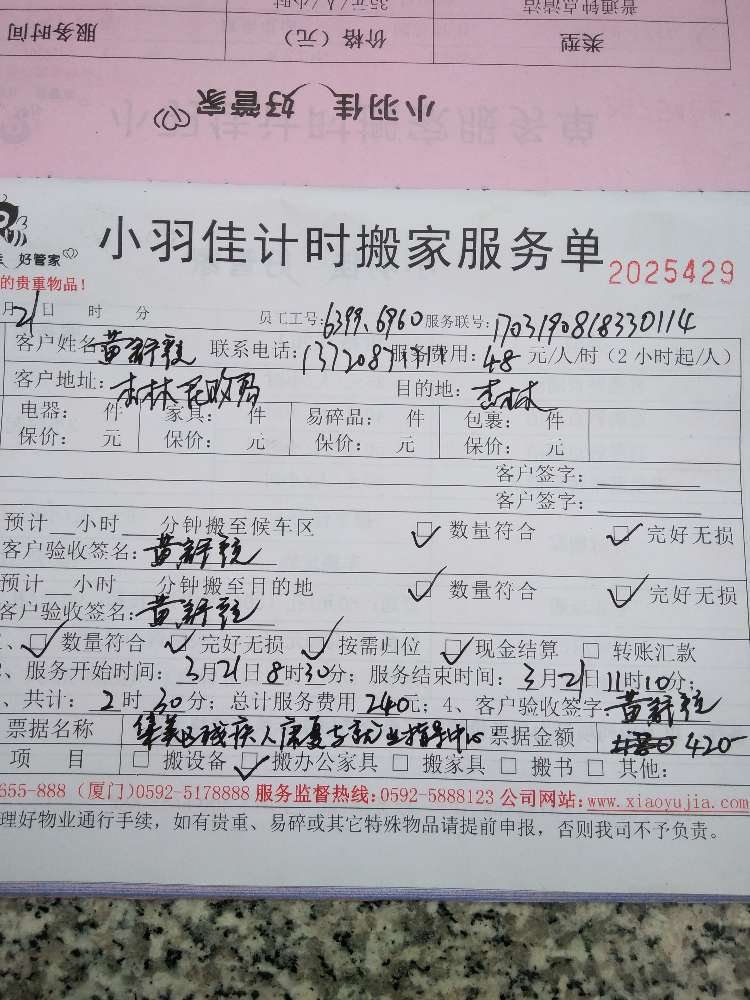 普通钟点清洁 35元/人/小时
类型 价格（元） 服务时间
小羽佳 好管家
小羽佳计时搬家服务单
好管家
2025429
的贵重物品！
月21日 时 分 员工工号:6399、6960 服务联号:1703190818330114
客户姓名 联系电话: 服务费用:48元/人/时（2小时起/人）
客户地址:杏林 目的地:杏林
电器: 件 家具: 件 易碎品: 件 包裹: 件
保价: 元 保价: 元 保价: 元 保价: 元
客户签字:
客户签字:
预计__小时__分钟搬至候车区 ☑数量符合 ☑完好无损
客户验收签名:
预计__小时__分钟搬至目的地 ☑数量符合 ☑完好无损
客户验收签名:
、☑数量符合 ☑完好无损 ☑按需归位 ☑现金结算 □转账汇款
、服务开始时间:3月21日8时30分；服务结束时间:3月21日11时10分；
、共计:2时30分；总计服务费用240元；4、客户验收签字:
票据名称 集美区残疾人康复与就业指导中心 票据金额 420
项 目 □搬设备 ☑搬办公家具 □搬家具 □搬书 □其他:
655-888（厦门）0592-5178888 服务监督热线:0592-5888123 公司网站:www.xiaoyujia.com
理好物业通行手续，如有贵重、易碎或其它特殊物品请提前申报，否则我司不予负责。